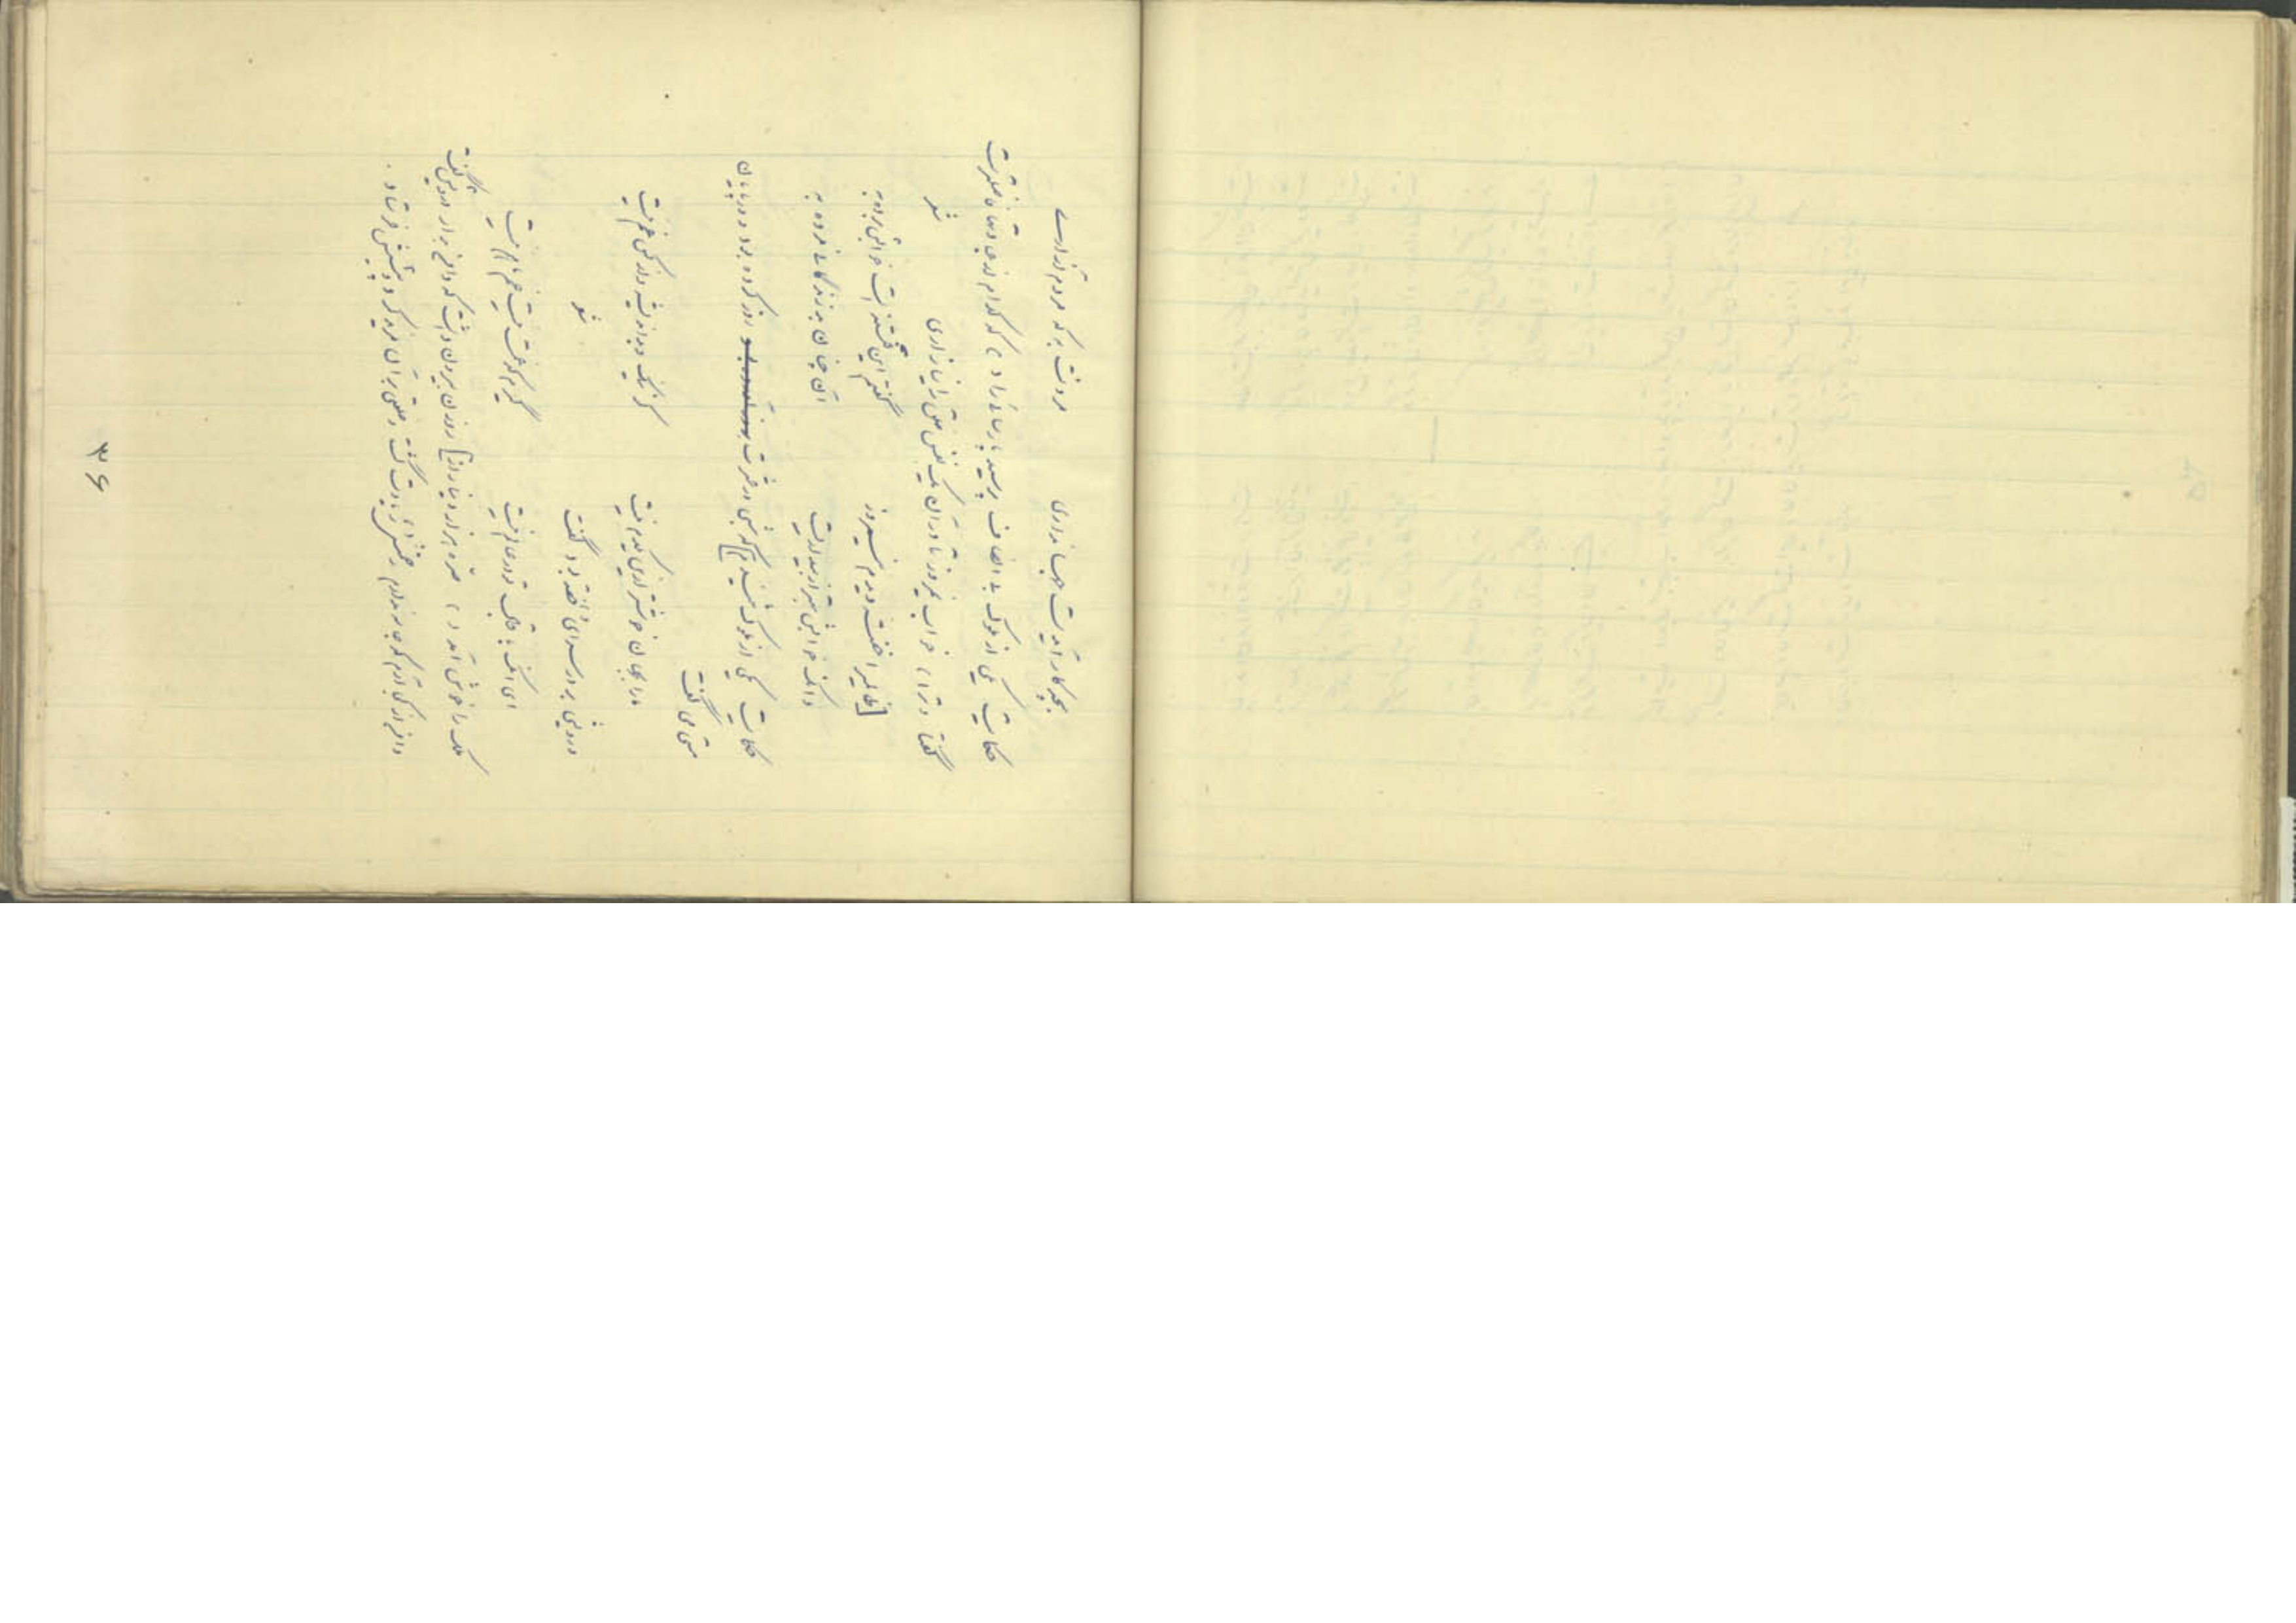 بچه کار آیدت جهانداری مردنت به که مردم آزارے
حکایت یکی از ملوک بے انصاف پرسید پارسائے را د کہ کدام از عبادتها فاضلترست
گفتا د ترا د خواب نیمروز تا در آن یک نفس خلق را نیازاری شعر
ظالمیرا خفتہ دیدم نیمروز گفتم این فتنه است خوابش بردہ بہ
وانکہ خوابش بهتر از بیداریست آن چنان بد زندگانے مردہ بہ
حکایت یکی از ملوک شنیدم کہ شبی در عشرت روز کردہ بود و در پایان
مستی می گفت
مارا بجهان خوشتر ازین یکدم نیست کز نیک و بد اندیشہ و از کس غم نیست
درویشی برون سرمای خفتہ بود گفت شعر
ای آنکہ باقبال تو در عالم نیست گیرم کہ غمت نیست غم ما هم نیست
ملک را خوش آمد د صرہ هزار دینار از روزن بیرون داشت کہ دامن بدار درویش گفت
دامن از کجا آرم کہ جامہ ندارم رحمتش زیادت گشت و خلعتی بر آن مزید کرد و پیشش فرستاد.
۳۶